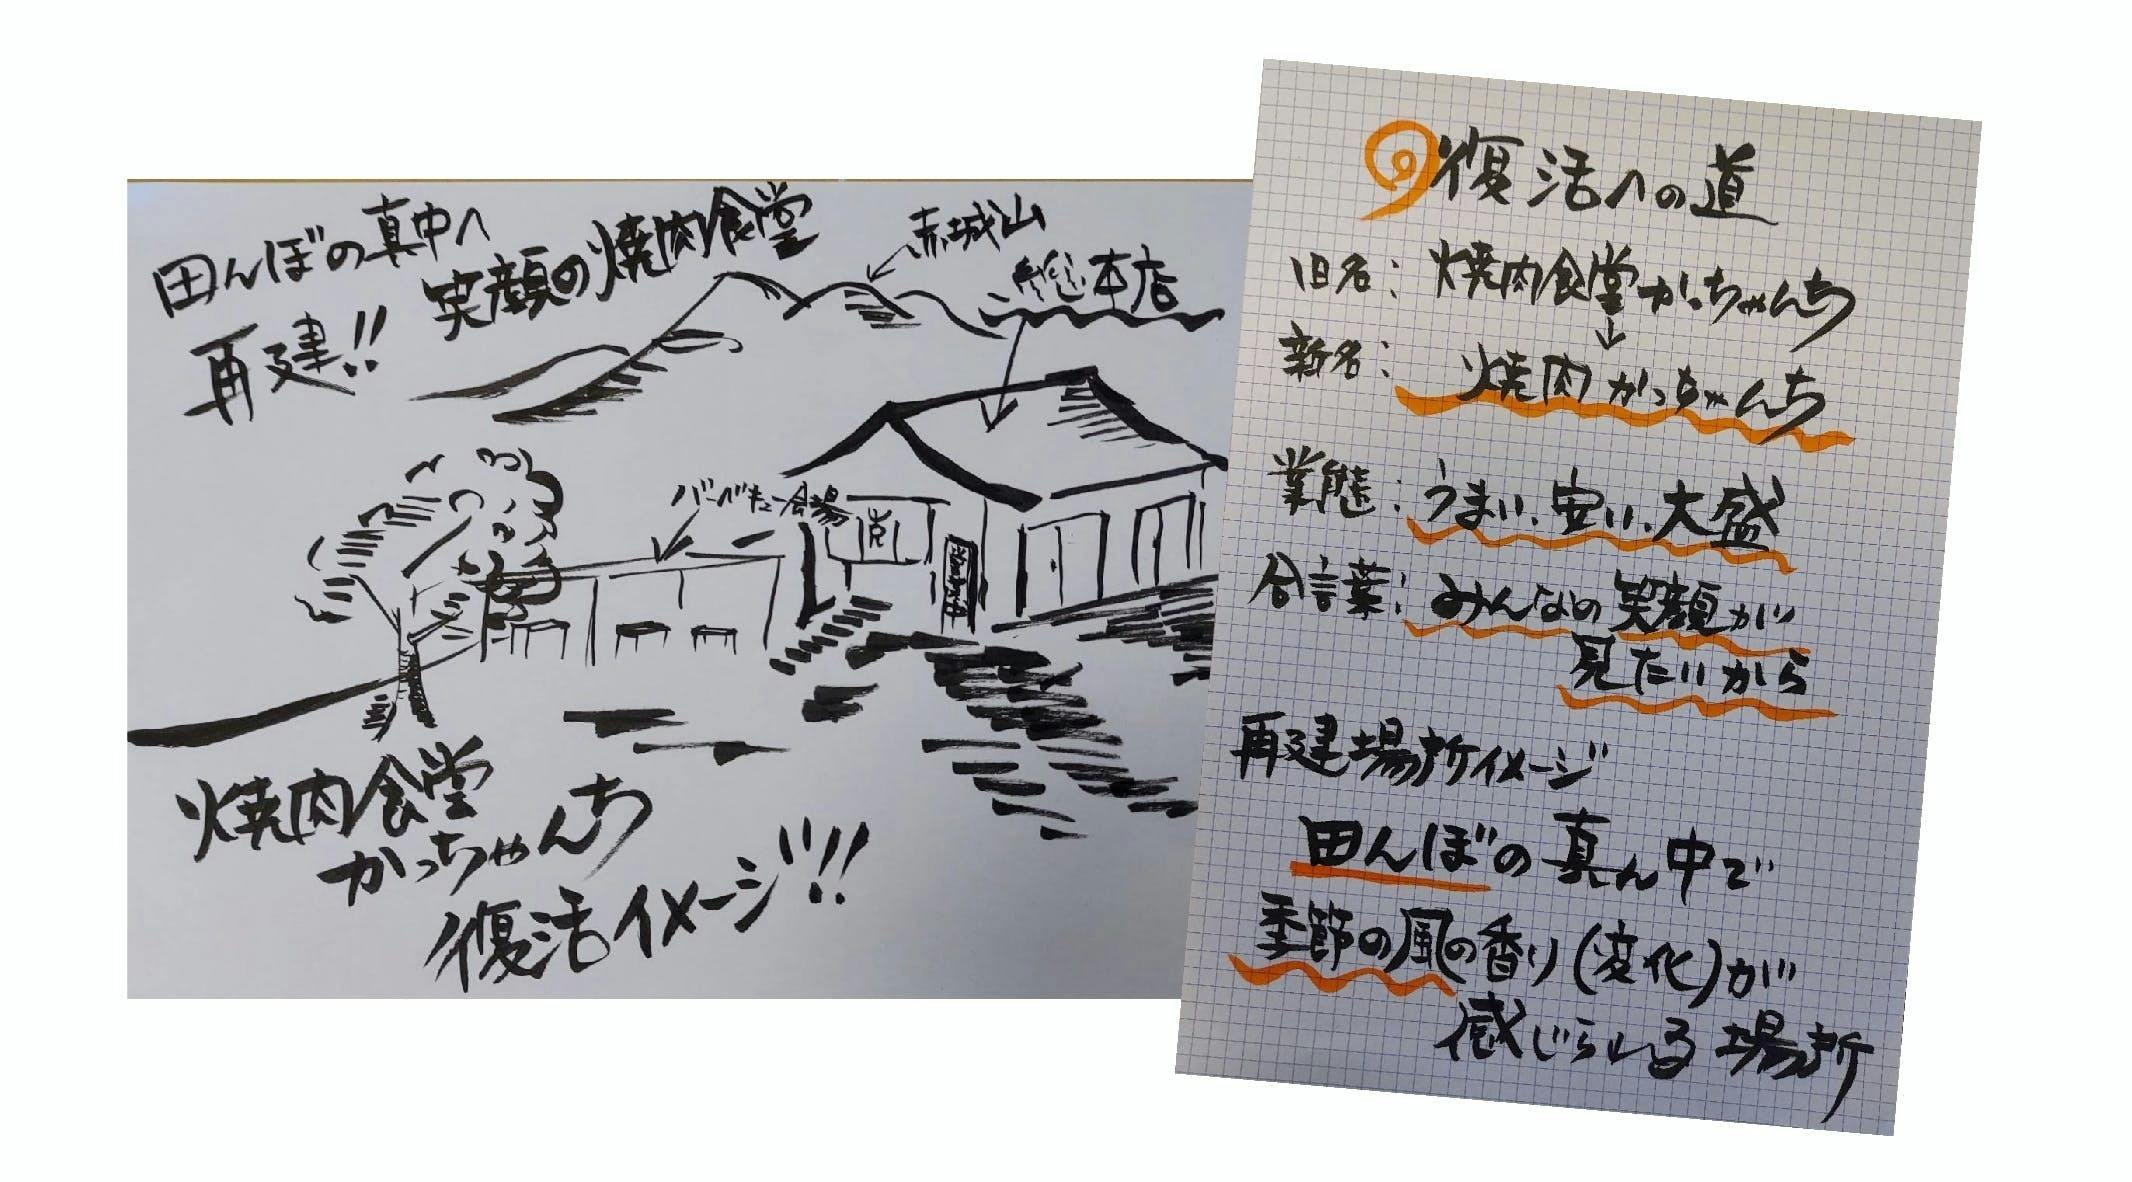 田んぼの真中へ
再建!!
笑顔の焼肉食堂
赤城山
総本店
バーベキュー会場
克
焼肉食堂
かっちゃんち
復活イメージ!!
復活への道
旧名:焼肉食堂かっちゃんち
↓
新名:焼肉かっちゃんち
業態:うまい、安い、大盛
合言葉:みんなの笑顔が
見たいから
再建場所イメージ
田んぼの真ん中で
季節の風の香り(変化)が
感じられる場所